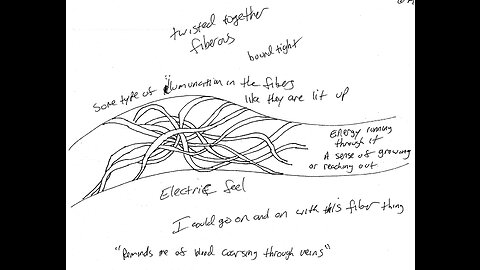 twisted together
fiberous
bound tight
some type of illumunation in the fibers
like they are lit up
Energy running
through it
A sense of growing
or reaching out
Electric feel
I could go on and on with this fiber thing
"Reminds me of blood coarsing through veins"